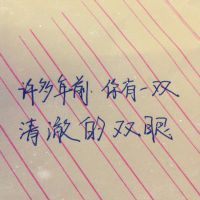 许多年前.你有一双
清澈的双眼